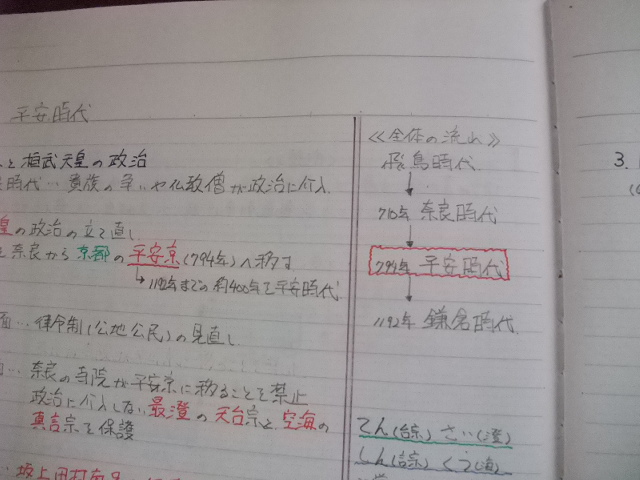 平安時代
と桓武天皇の政治
時代…貴族の争いや仏教僧が政治に介入
皇の政治の立て直し
を奈良から京都の平安京(794年)へ移す
→1192年までの約400年を平安時代
面…律令制(公地公民)の見直し
…奈良の寺院が平安京に移ることを禁止
政治に介入しない最澄の天台宗と空海の
真言宗を保護
坂上田村麻呂
≪全体の流れ≫
飛鳥時代
↓
710年 奈良時代
↓
794年 平安時代
↓
1192年 鎌倉時代
てん(台宗) さい(澄)
しん(言宗) くう(海)
3.